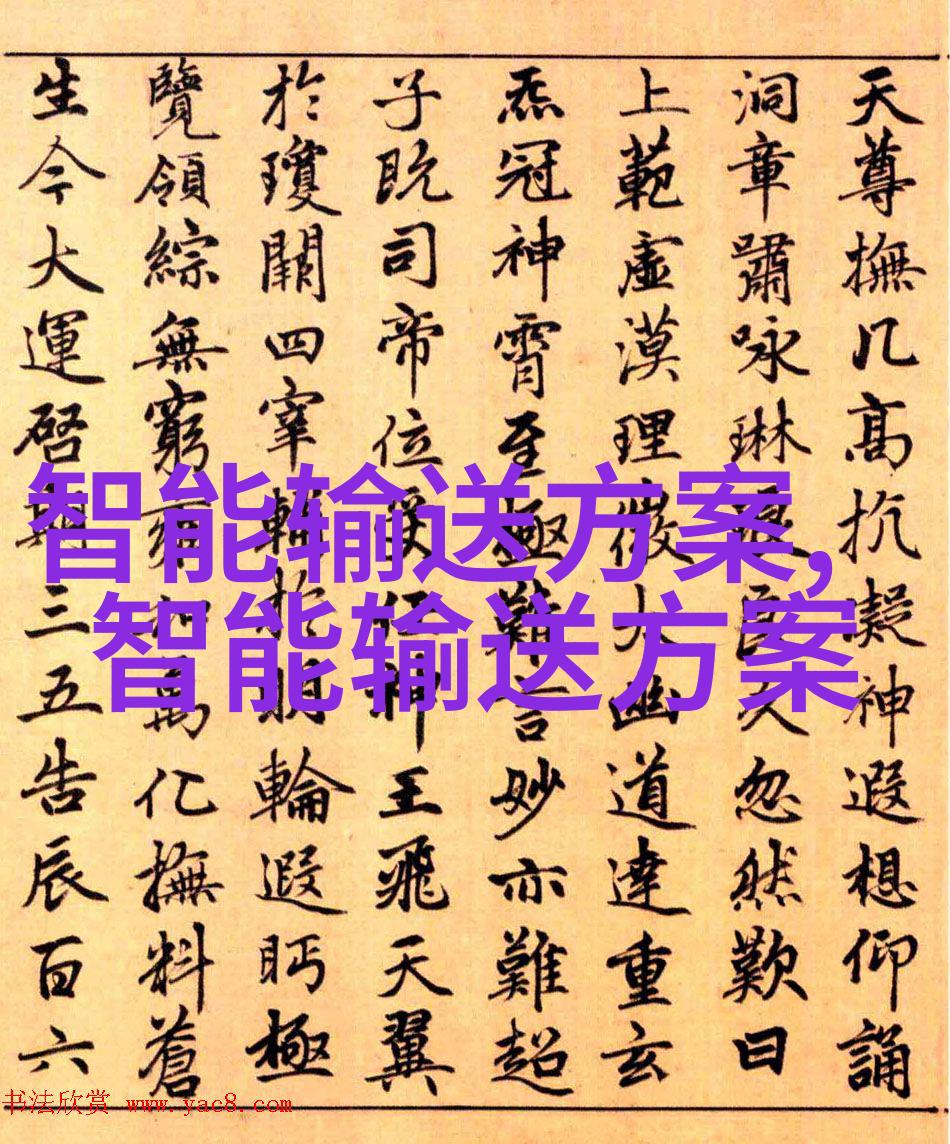 天尊撫几高抗凝神遐想仰誦
洞章嘯咏琳琅良久忽然歎曰
上範虛漠理微大幽道達重玄
炁冠神霄至極難言妙亦難超
子既司帝位受任神王飛天翼
於瓊闕四宰輔於朗輪遐眄極
覽領綜無窮萬化撫料蒼
生今大運啓期三五告辰百六
智能输送方案,
智能输送方案
书法欣赏 www.yac8.com